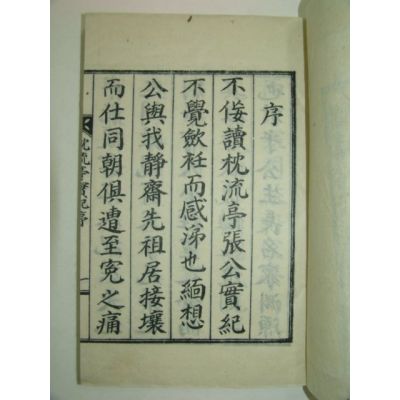 序
不佞讀枕流亭張公實紀
不覺斂衽而感涕也緬想
公與我靜齋先祖居接壤
而仕同朝俱遭至冤之痛
枕流亭實紀序
一